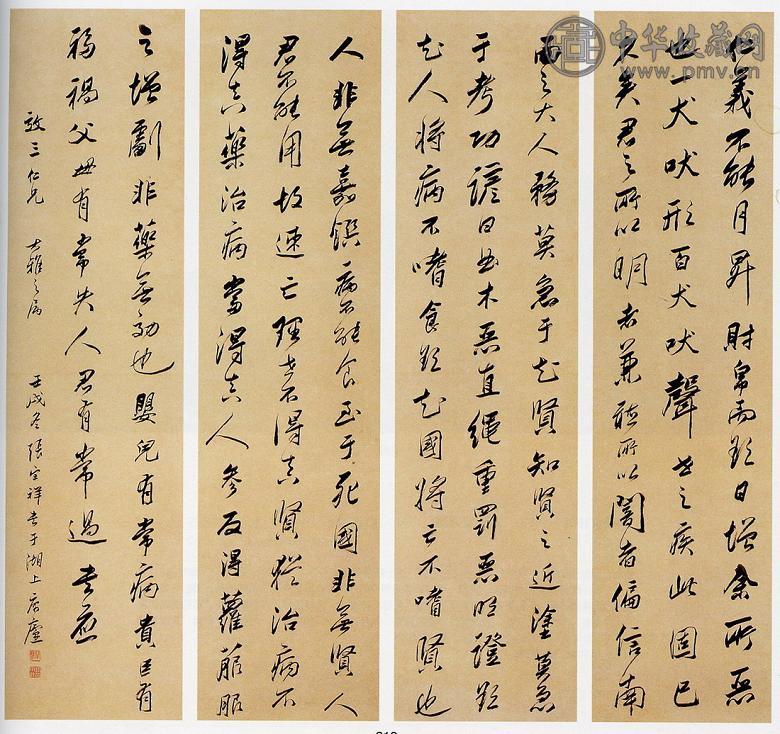 中华收藏网
www.pmv.cn
仁義不能月昇財帛而欲日增余所惡
也一犬吠形百犬吠聲世之疾此固已
久矣君之所以明者兼聽所以闇者偏信南
面之大人務莫急于知賢知賢之近塗莫急
于考功諺曰曲木惡直繩重罰惡明證欲
知人將病不嗜食欲知國將亡不嗜賢也
人非無嘉饌病不能食至于死國非無賢人
君不能用故速亡理世不得真賢猶治病不
得真藥治病當得真人參反得蘿菔服
之增劇非藥無効也嬰兒有常病貴臣有
禍福父母有常失人君有常過書應
敬三仁兄大雅之屬壬戌冬張宗祥書于湖上居廬